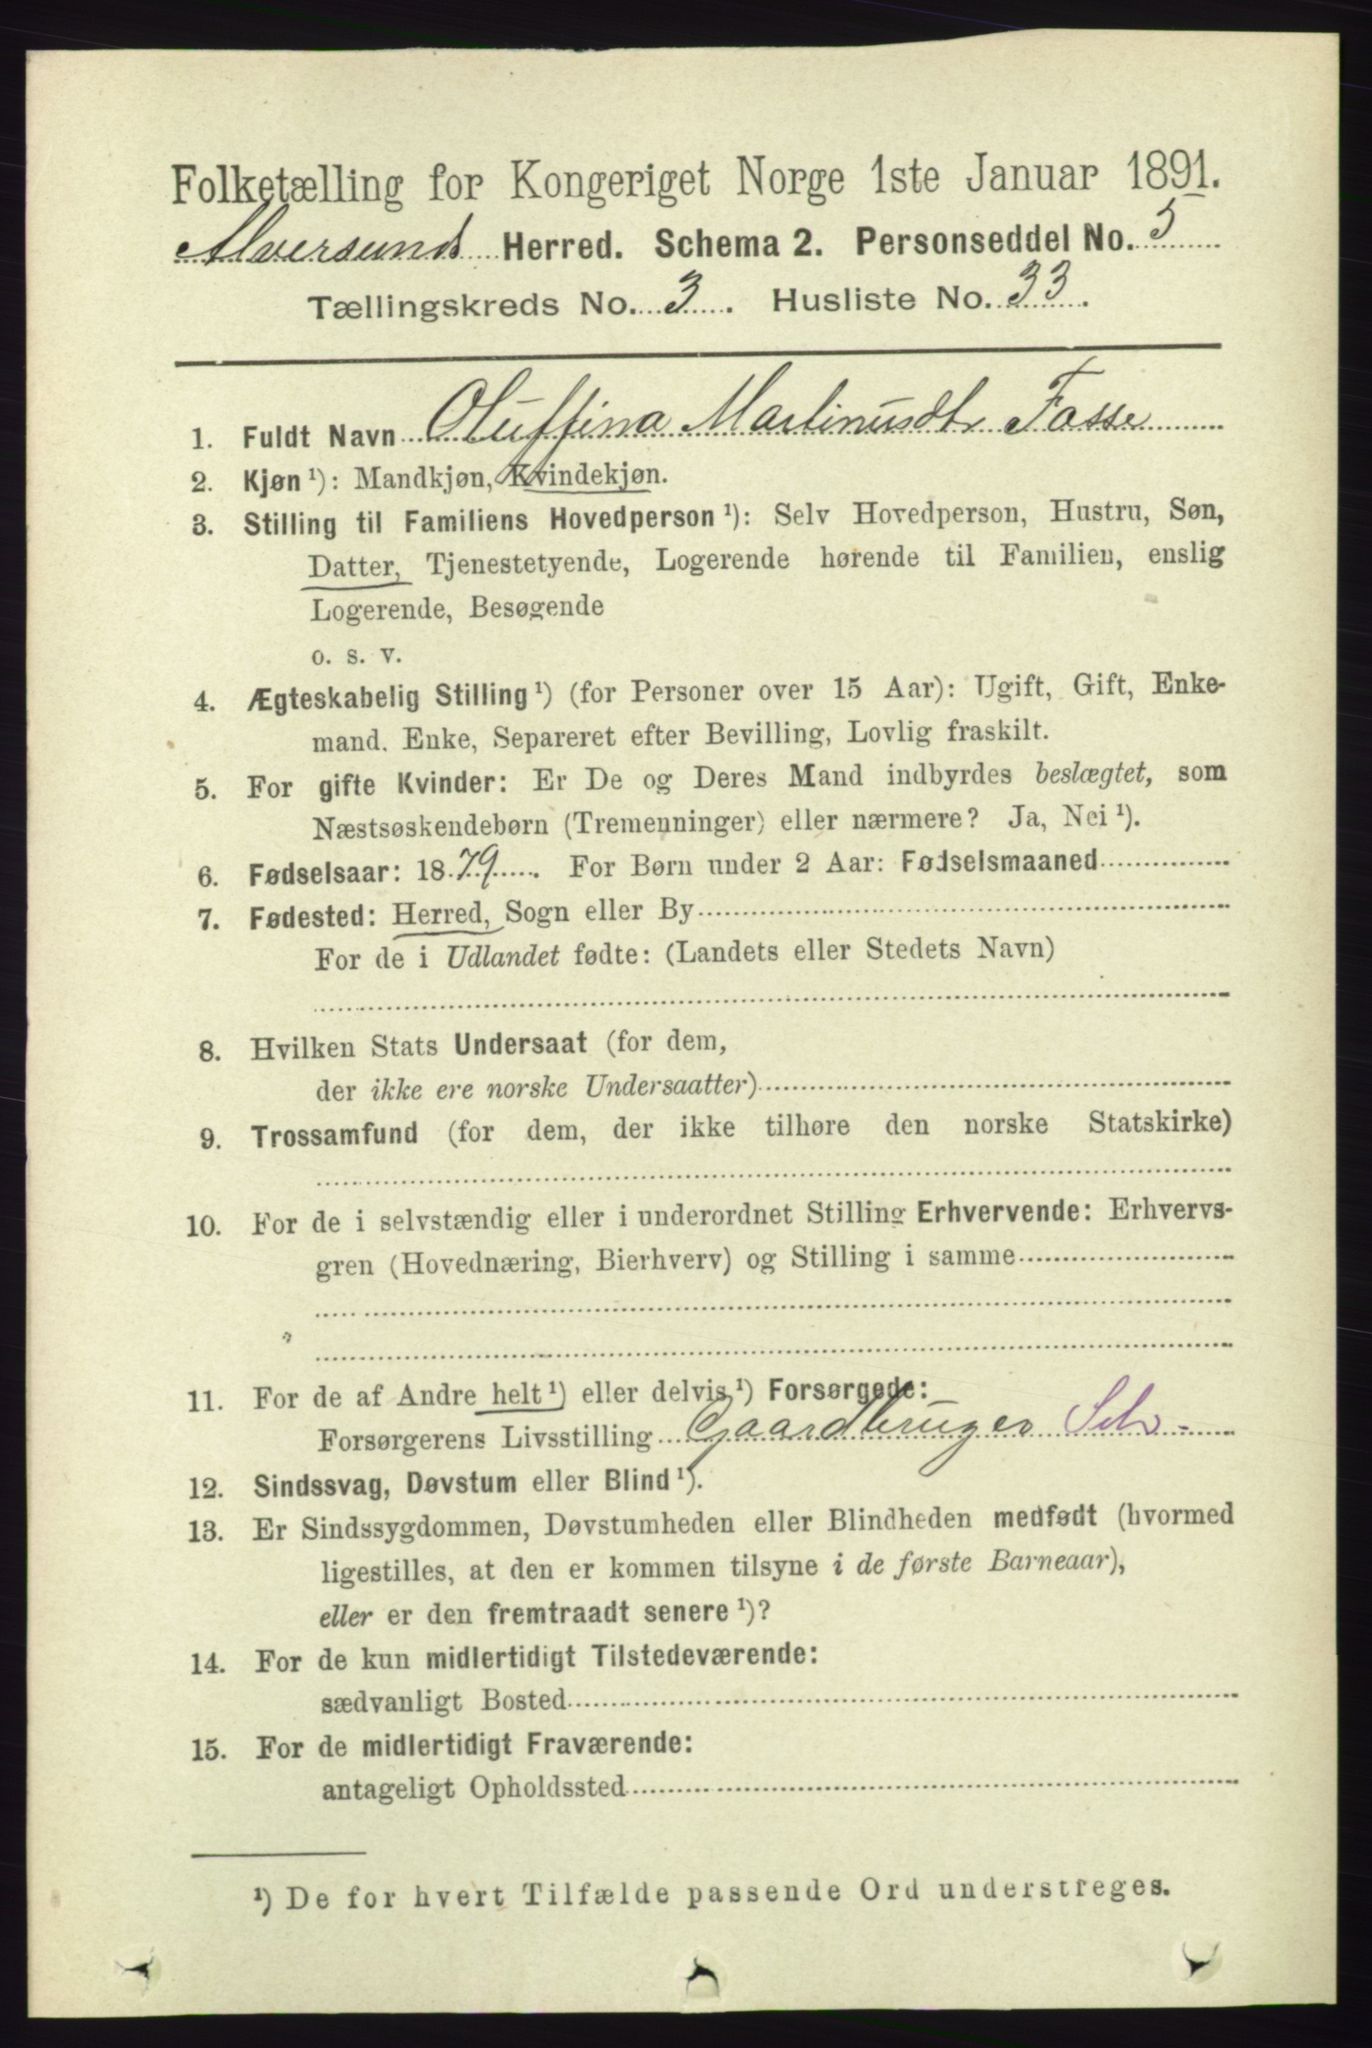 Folketælling for Kongeriget Norge 1ste Januar 1891.
Alversunds Herred. Schema 2. Personseddel No. 5
Tællingskreds No. 3. Husliste No. 33.
1. Fuldt Navn Oluffina Martinusdtr Fosse
2. Kjøn ¹): Mandkjøn, Kvindekjøn.
3. Stilling til Familiens Hovedperson ¹): Selv Hovedperson, Hustru, Søn,
Datter, Tjenestetyende, Logerende hørende til Familien, enslig
Logerende, Besøgende
o. s. v.
4. Ægteskabelig Stilling ¹) (for Personer over 15 Aar): Ugift, Gift, Enke-
mand, Enke, Separeret efter Bevilling, Lovlig fraskilt.
5. For gifte Kvinder: Er De og Deres Mand indbyrdes beslægtet, som
Næstsøskendebørn (Tremenninger) eller nærmere? Ja, Nei ¹).
6. Fødselsaar: 1879. For Børn under 2 Aar: Fødselsmaaned
7. Fødested: Herred, Sogn eller By
For de i Udlandet fødte: (Landets eller Stedets Navn)
8. Hvilken Stats Undersaat (for dem,
der ikke ere norske Undersaatter)
9. Trossamfund (for dem, der ikke tilhøre den norske Statskirke)
10. For de i selvstændig eller i underordnet Stilling Erhvervende: Erhvervs-
gren (Hovednæring, Bierhverv) og Stilling i samme
11. For de af Andre helt ¹) eller delvis ¹) Forsørgede:
Forsørgerens Livsstilling Gaardbruger Selv
12. Sindssvag, Døvstum eller Blind ¹).
13. Er Sindssygdommen, Døvstumheden eller Blindheden medfødt (hvormed
ligestilles, at den er kommen tilsyne i de første Barneaar),
eller er den fremtraadt senere ¹)?
14. For de kun midlertidigt Tilstedeværende:
sædvanligt Bosted
15. For de midlertidigt Fraværende:
antageligt Opholdssted
¹) De for hvert Tilfælde passende Ord understreges.